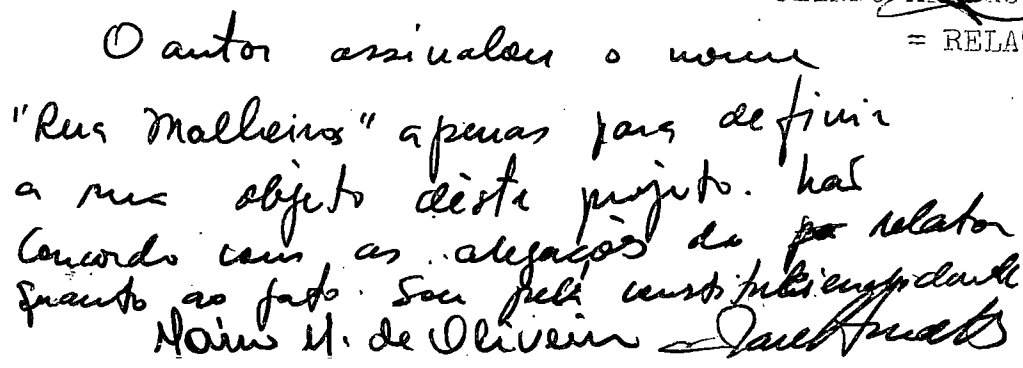 = RELA
O autor assinalou o nome
"Rua Malheiros" apenas para definir
a rua objeto dêste projeto. Não
concordo com as alegações do relator
quanto ao fato. Sou pela constitucionalidade
Mário M. de Oliveira